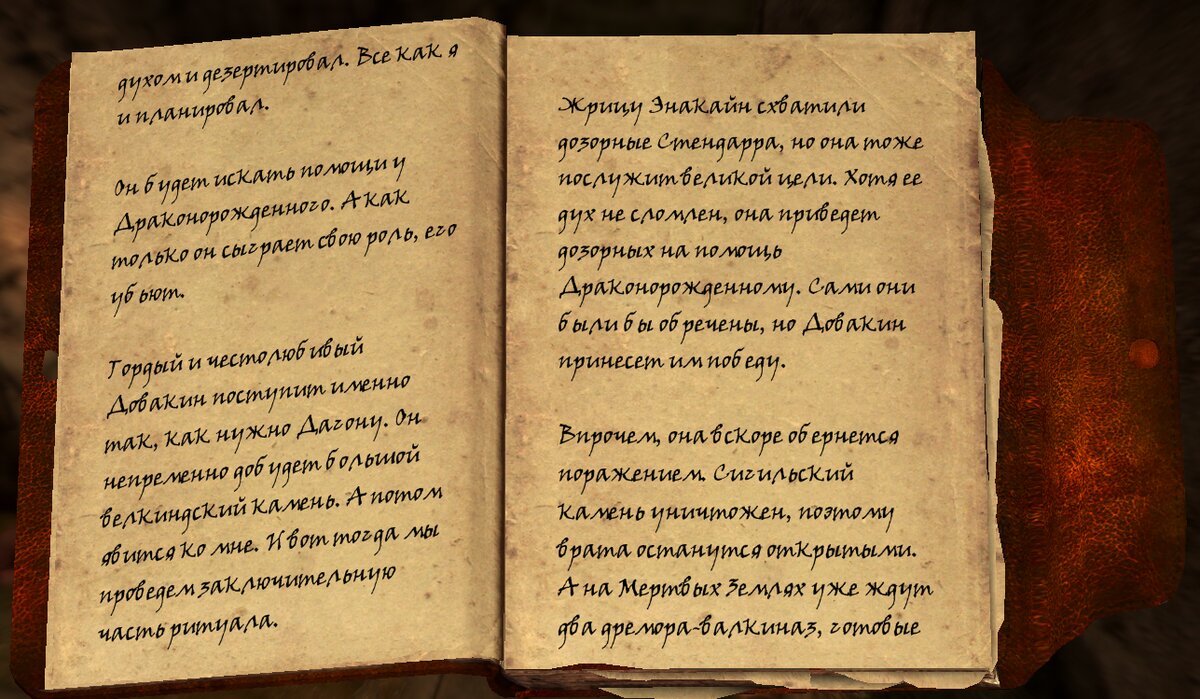 духом и дезертировал. Все как я
и планировал.
Он будет искать помощи у
Драконорожденного. А как
только он сыграет свою роль, его
убьют.
Гордый и честолюбивый
Довакин поступит именно
так, как нужно Дагону. Он
непременно добудет большой
велкиндский камень. А потом
явится ко мне. И вот тогда мы
проведем заключительную
часть ритуала.
Жрицу Энакайн схватили
дозорные Стендарра, но она тоже
послужит великой цели. Хотя ее
дух не сломлен, она приведет
дозорных на помощь
Драконорожденному. Сами они
были бы обречены, но Довакин
принесет им победу.
Впрочем, она вскоре обернется
поражением. Сигильский
камень уничтожен, поэтому
врата останутся открытыми.
А на Мертвых Землях уже ждут
два дремора-валкиназ, готовые